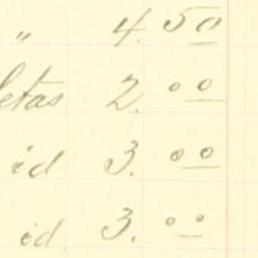 " 4.50
letas 2.00
id 3.00
id. 3.00